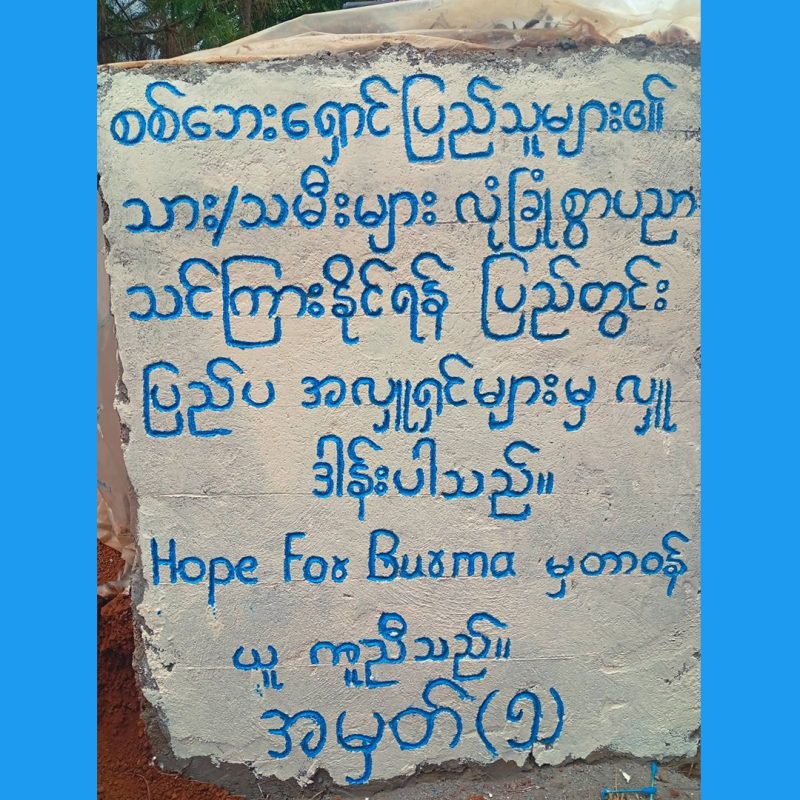 စစ်ဘေးရှောင်ပြည်သူများ၏
သား/သမီးများ လုံခြုံစွာပညာ
သင်ကြားနိုင်ရန် ပြည်တွင်း
ပြည်ပ အလှူရှင်များမှ လှူ
ဒါန်းပါသည်။
Hope For Burma မှတာဝန်
ယူ ကူညီသည်။
အမှတ်(၅)